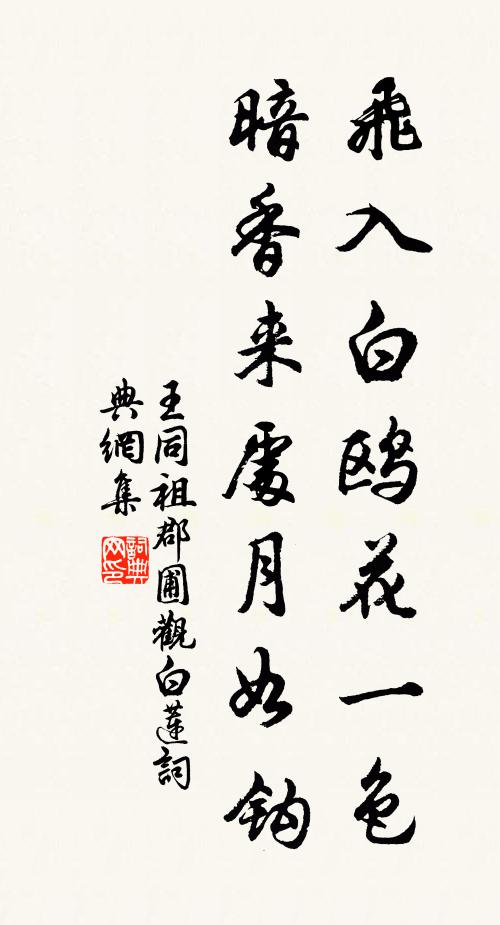 飛入白鷗花一色
暗香来處月如鈎
王同祖郡圃觀白蓮詞
典網集
詞典網印